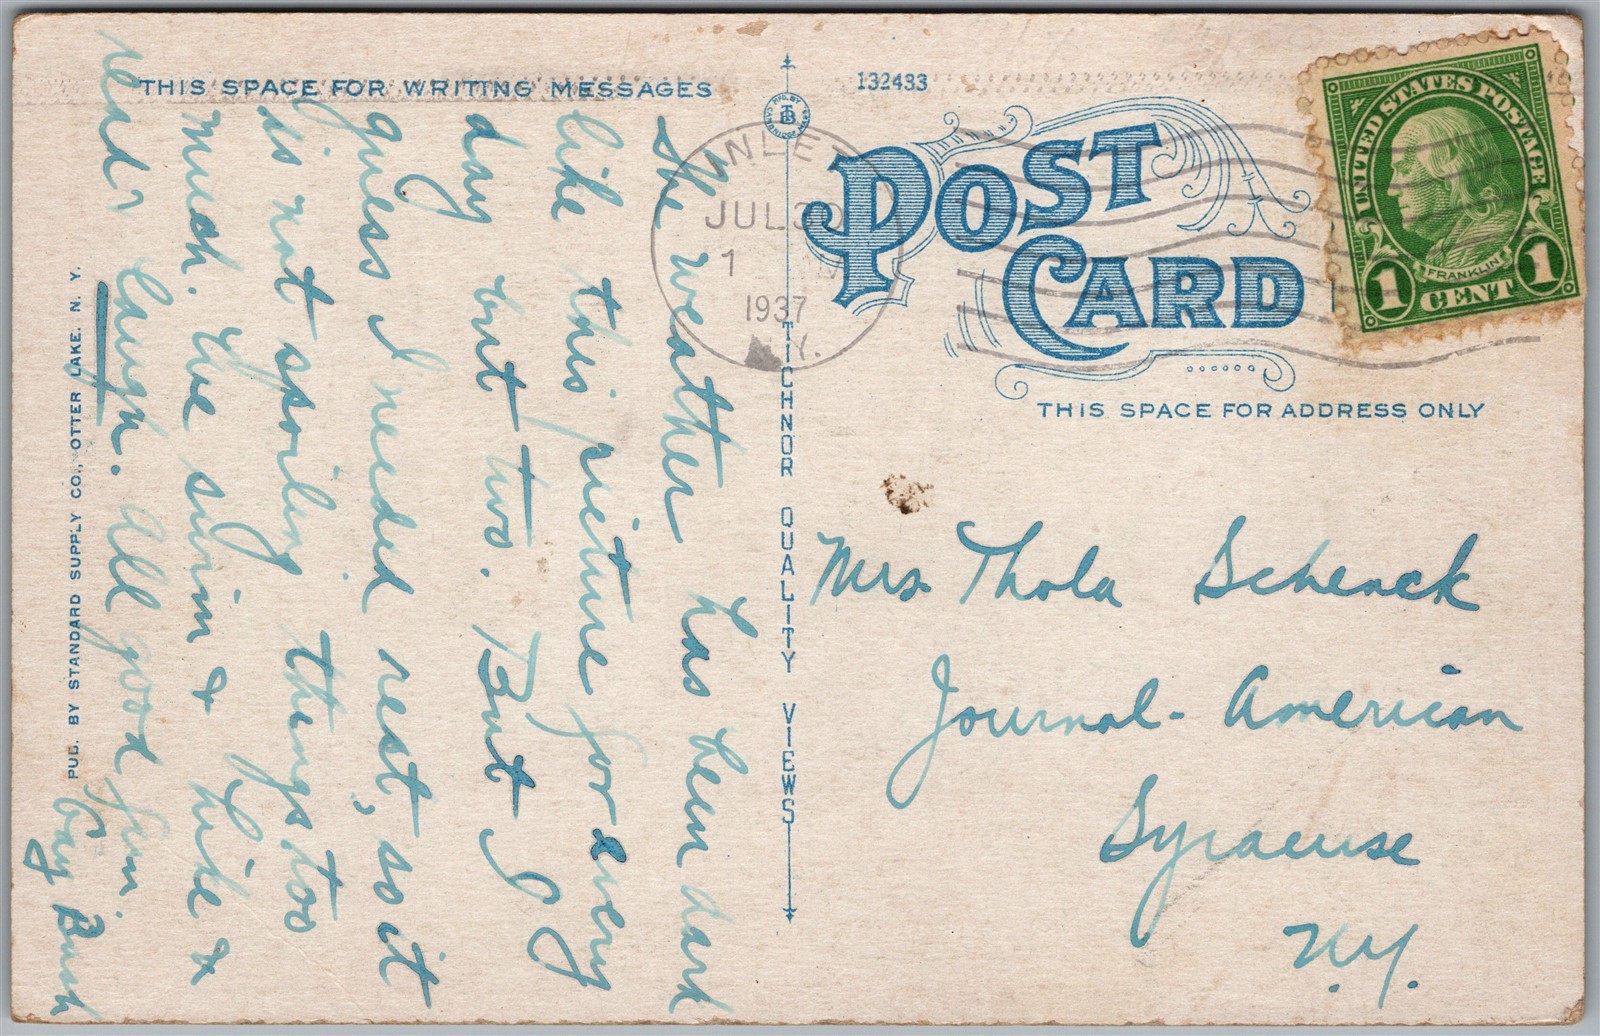 THIS SPACE FOR WRITING MESSAGES
The weather has been dark
like this picture for every
day but two. But I
guess I needed rest, so it
is not spoiling things too
much. We swim & hike &
read & laugh. All good fun.
Gay Bush
PUB. BY STANDARD SUPPLY CO., OTTER LAKE, N. Y.
TICHNOR QUALITY VIEWS
MFG. BY
TB
CAMBRIDGE, MASS.
132433
POST
CARD
THIS SPACE FOR ADDRESS ONLY
INLET
JUL 30
1 PM
1937
N.Y.
UNITED STATES POSTAGE
FRANKLIN
1 CENT 1
Mrs Thola Schenck
Journal-American
Syracuse
N.Y.